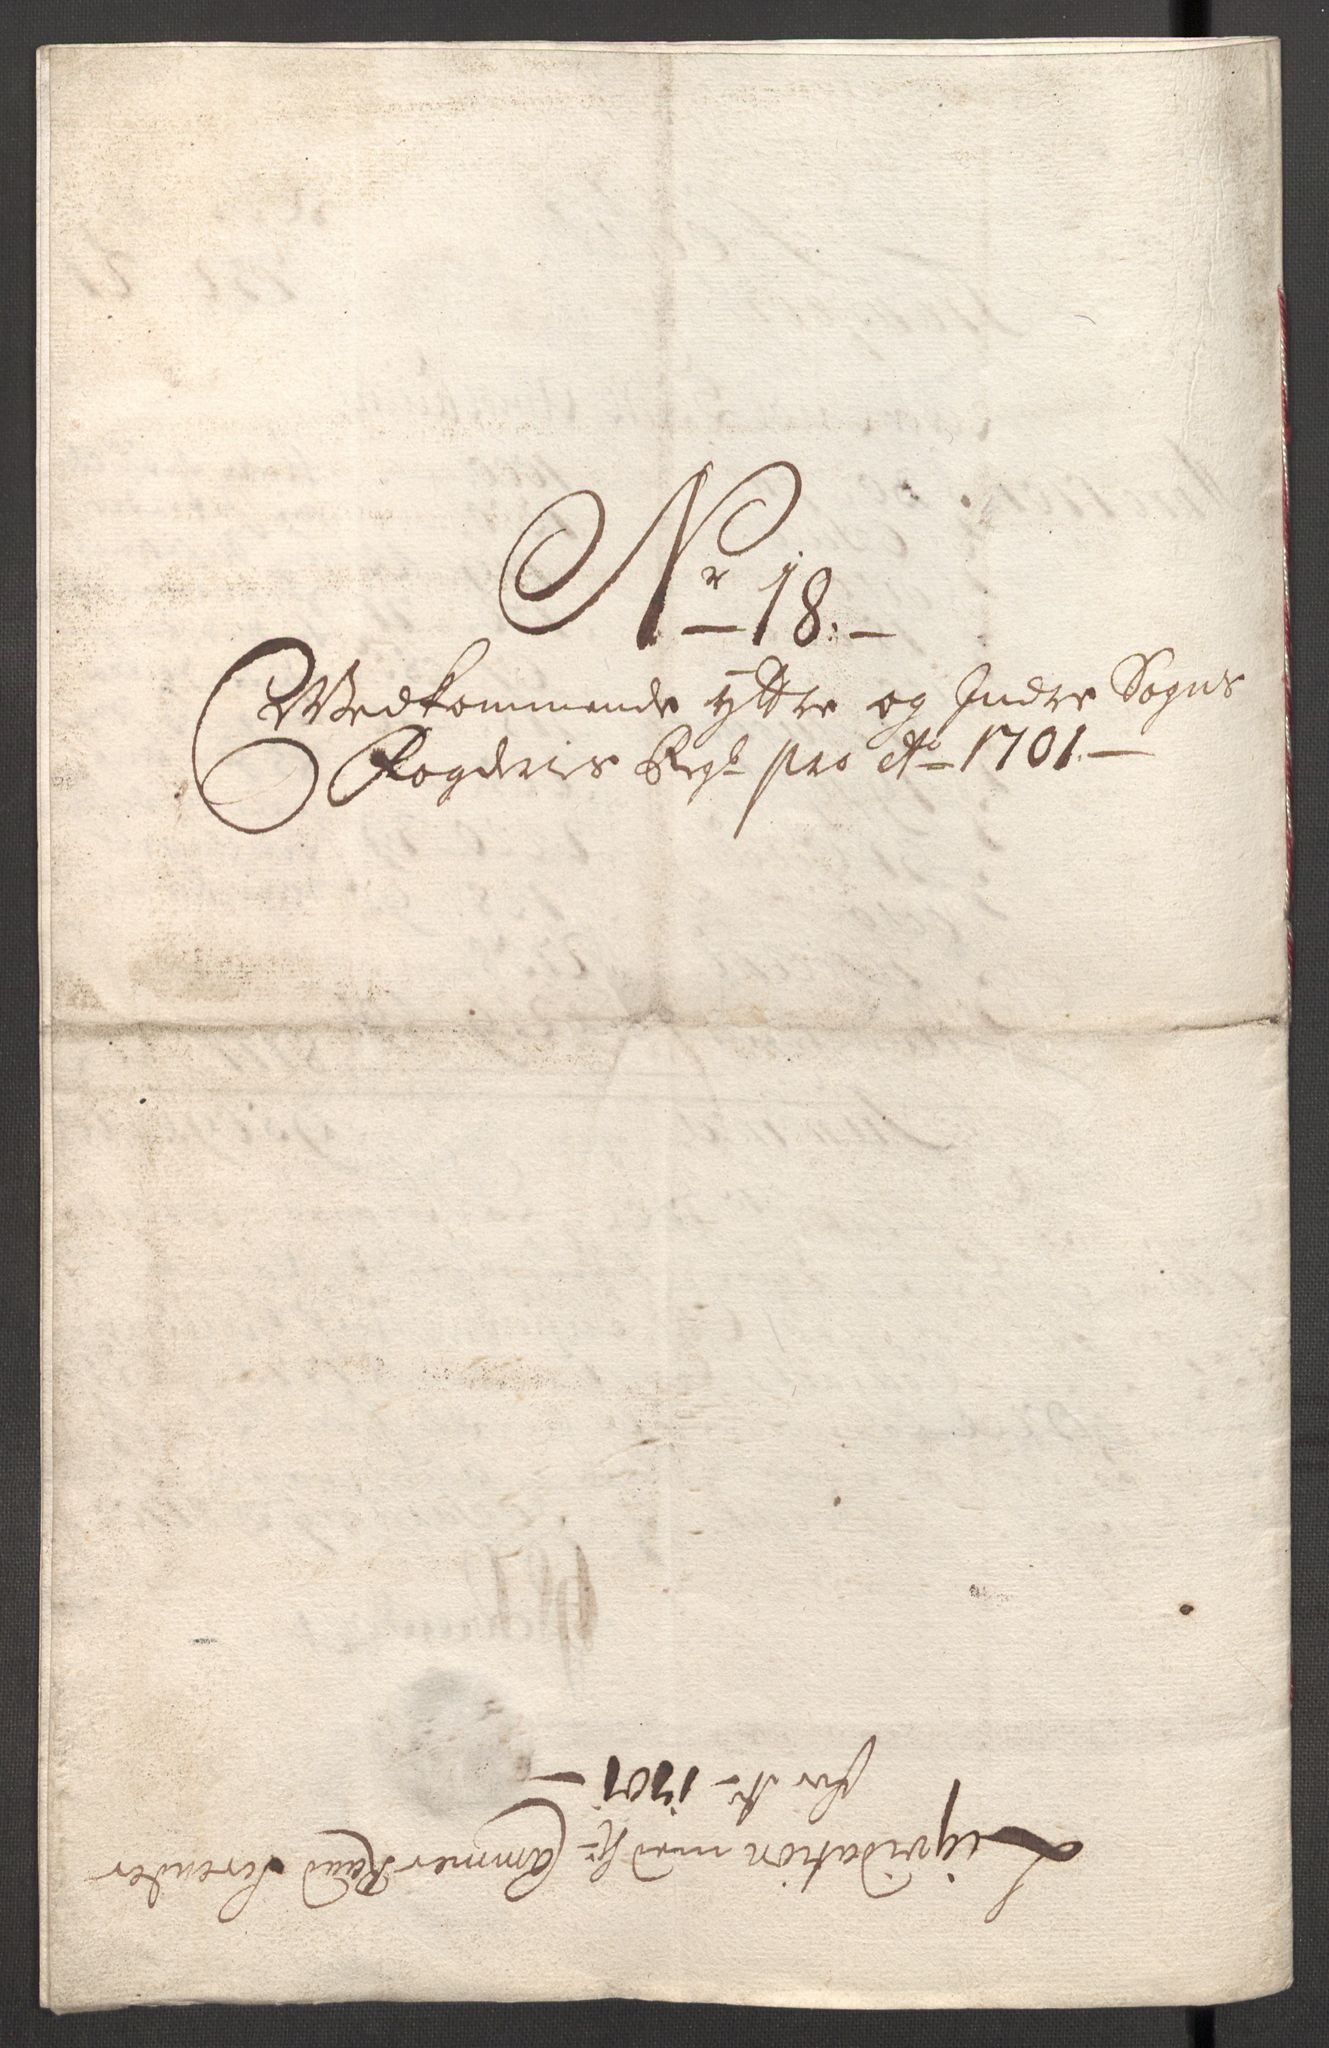 Nr 18.
Vedkommende yttre og Indre Sogns
Fogderies Regk pro Ao 1701.
Liqvidation med Hr Cammer Raad Severider
for Ao 1701